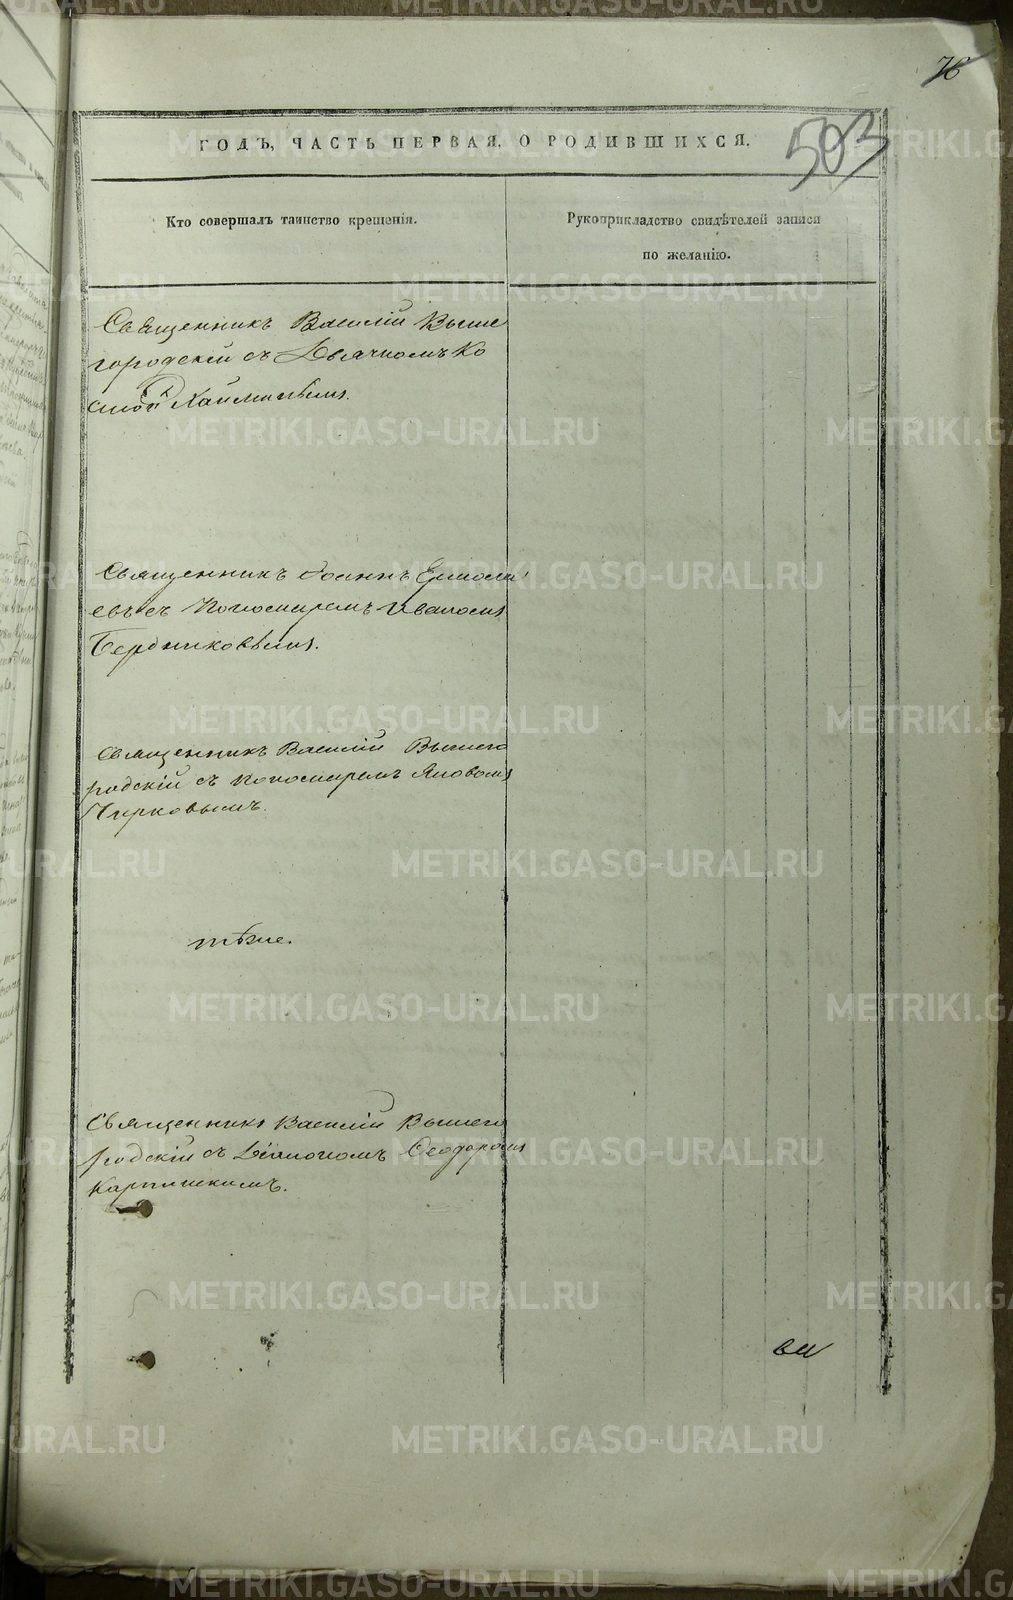 76
503
ГОДЪ, ЧАСТЬ ПЕРВАЯ, О РОДИВШИХСЯ.
Кто совершалъ таинство крещенія.
Рукоприкладство свидѣтелей записи
по желанію.
Священникъ Василій Выше
городскій съ Дьячкомъ Ко
Священникъ Іоаннъ Ермола
евъ съ Пономаремъ Иваномъ
Бердниковымъ.
Священникъ Василій Вышего
родскій съ Пономаремъ Яковомъ
Чирковымъ.
тѣже.
Священникъ Василій Вышего
родскій съ Діакономъ Ѳеодоромъ
Карпинскимъ.
METRIKI.GASO-URAL.RU